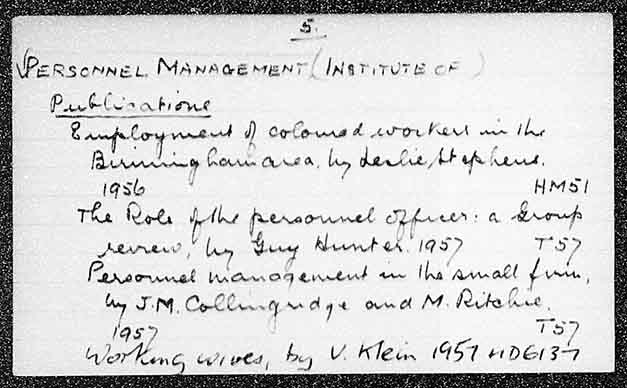 5.
√PERSONNEL MANAGEMENT (INSTITUTE OF)
Publications
Employment of coloured workers in the
Birmingham area, by Leslie Stephens.
1956 HM51
The Role of the personnel officer: a Group
review, by Guy Hunter. 1957 T57
Personnel management in the small firm,
by J.M. Collingridge and M. Ritchie.
1957 T57
Working wives, by V. Klein 1957 HD6137